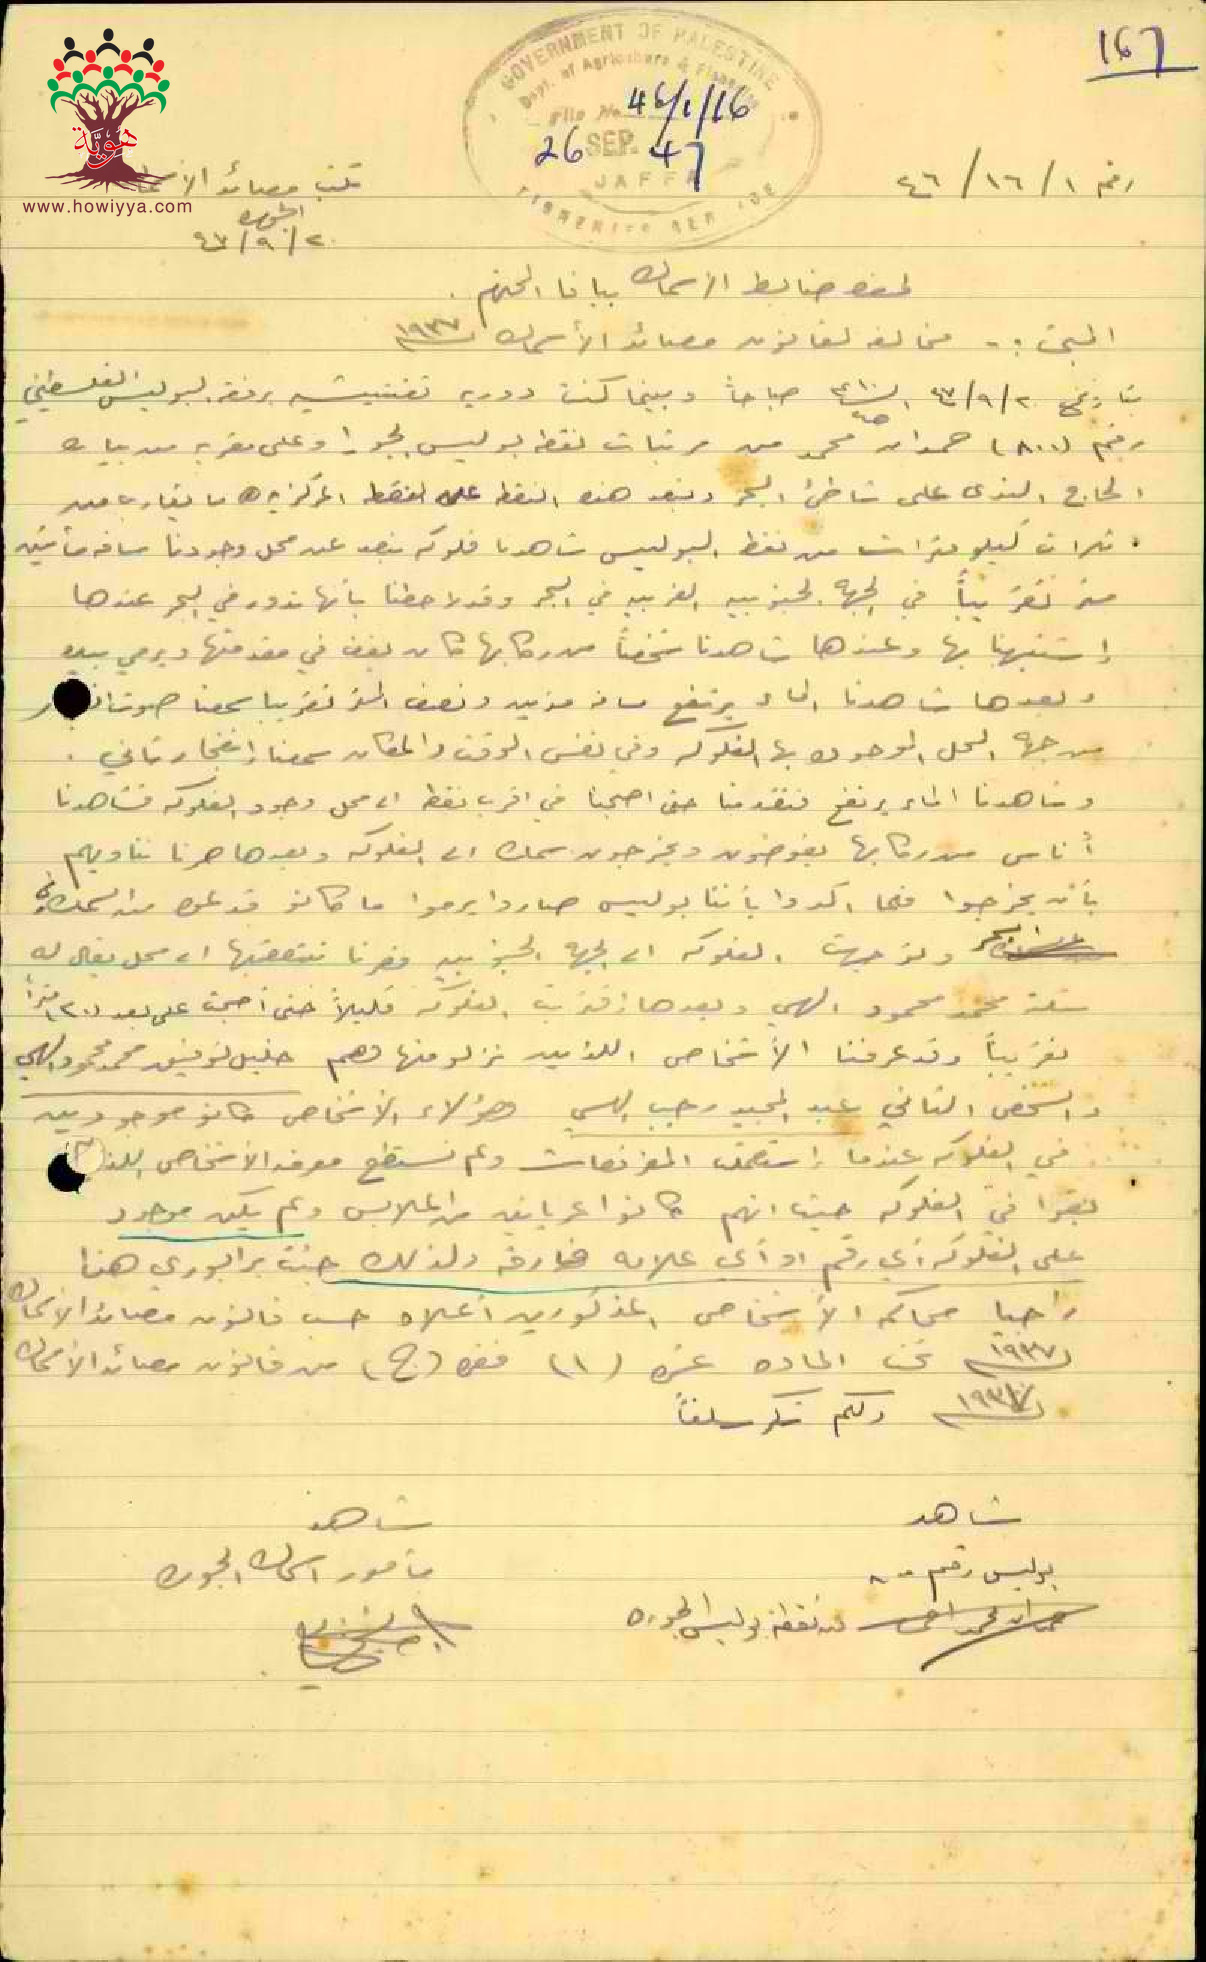 167
GOVERNMENT OF PALESTINE
Dept. of Agriculture & Fisheries
File No. 46/1/16
26 SEP. 47
JAFFA
هوية
www.howiyya.com
رقم ١/١٦/٤٦
مكتب مصائد الأسماك
الجوره
٤٧/٩/٢٠
لحضرة ضابط الأسماك بيافا المحترم .
المبحث :- مخالفه لقانون مصائد الأسماك ١٩٣٧
بتاريخ ٤٧/٩/٢٠ الساعه صباحاً وبينما كنت دوريه تفتيشيه برفقة البوليس الفلسطيني
رقم (٨٠٠) حمدان محمد من مرتبات نقطة بوليس الجوره وعلى مقربه من بيارة
الحاج الذي على شاطئ البحر وتبعد هذه النقطه على النقطه المركزيه ما يقارب من
ثلاث كيلومترات من نقطة البوليس شاهدنا فلوكه تبعد عن محل وجودنا مسافه مأتين
متر تقريباً في الجهه الجنوبيه الغربيه في البحر وقد لاحظنا بأنها تدور في البحر عندها
إشتبهنا بها وعندها شاهدنا شخصاً من ركابها كان يقف في مقدمتها ويرمي بيده
وبعدها شاهدنا الماء يرتفع مسافة مترين ونصف المتر تقريبا سمعنا صوت
من جهة المحل الموجود بها الفلوكه وفي نفس الوقت والمكان سمعنا إنفجار ثاني .
وشاهدنا الماء يرتفع فتقدمنا حتى اصبحنا في اقرب نقطه الى محل وجود الفلوكه فشاهدنا
أناس من ركابها يغوضون ويخرجون سمك الى الفلوكه وبعدها صرنا نناديهم
بأن يخرجوا فلما اكدوا بأننا بوليس صاروا يرموا ما كانو قد عن السمك في
البحر وتوجهت الفلوكه الى الجهه الجنوبيه فصرنا نتعقبها الى محل يقال له
ستة محمد محمود الهسي وبعدها إقتربت الفلوكه قليلاً حتى أصبحت على بعد (٢٠) متراً
تقريباً وقد عرفنا الأشخاص اللذين نزلو منها وهم خليل توفيق محمد محمود الهسي
والشخص الثاني عبد المجيد رجب الهسي هؤلاء الأشخاص كانو موجودين
في الفلوكه عندما إستعملت المفرقعات ولم نستطع معرفة الأشخاص
بقوا في الفلوكه حيث انهم كانوا عريانين من الملابس ولم يكن موجود
على الفلوكه أي رقم او أي علامه فارقه ولذلك جئت برابوري هذا
راجيا محاكمة الأشخاص المذكورين أعلاه حسب قانون مصائد الأسماك
١٩٣٧ تحت الماده عشره (١) فقره (ج) من قانون مصائد الأسماك
١٩٣٧ ولكم شكر سلفاً
شاهد
بوليس رقم ٨٠٠
حمدان محمد من نقطة بوليس الجوره
شاهد
مأمور اسماك الجوره